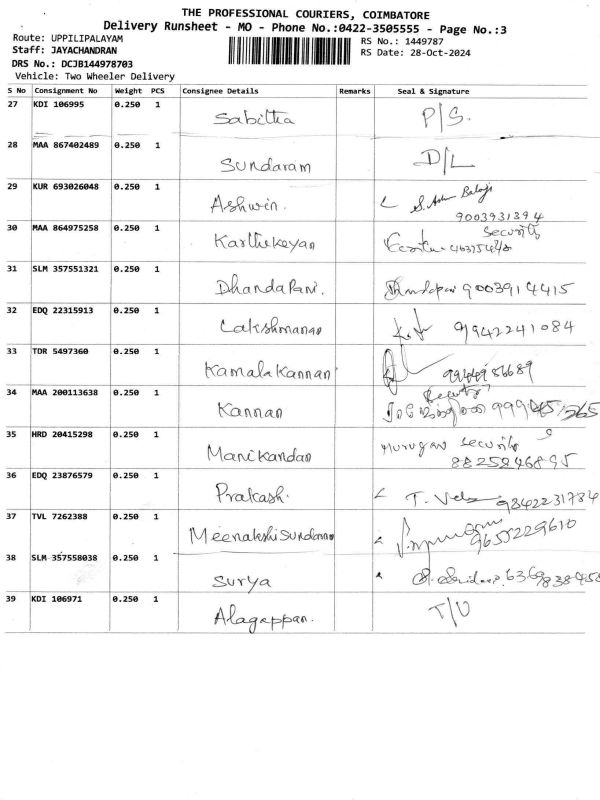 THE PROFESSIONAL COURIERS, COIMBATORE
Delivery Runsheet - MO - Phone No.:0422-3505555 - Page No.:3
Route: UPPILIPALAYAM
RS No.: 1449787
Staff: JAYACHANDRAN
RS Date: 28-Oct-2024
DRS No.: DCJB144978703
Vehicle: Two Wheeler Delivery
S No Consignment No Weight PCS Consignee Details Remarks Seal & Signature
27 KDI 106995 0.250 1 Sabitha P/S.
28 MAA 867402489 0.250 1 Sundaram D/L
29 KUR 693026048 0.250 1 Ashwin. S. Balaji
9003931394
30 MAA 864975258 0.250 1 Karthikeyan Security
31 SLM 357551321 0.250 1 DhandaPani. 9003914415
32 EDQ 22315913 0.250 1 Lakshmanan 9942241084
33 TDR 5497360 0.250 1 Kamala Kannan 9944986689
34 MAA 200113638 0.250 1 Kannan
35 HRD 20415298 0.250 1 Manikandan Murugan Security
8825846895
36 EDQ 23876579 0.250 1 Prakash. T. 9842231784
37 TVL 7262388 0.250 1 Meenakshi Sundaram 9655229610
38 SLM 357558038 0.250 1 Surya
39 KDI 106971 0.250 1 Alagappan. T/U